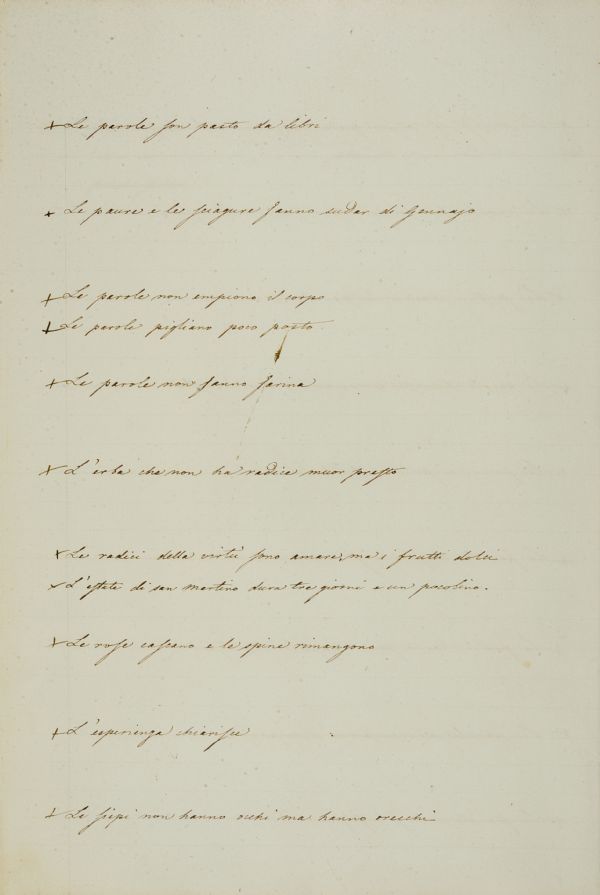 + Le parole son pasto da libri
+ Le paure e le sciagure fanno sudar di Gennajo
+ Le parole non empiono il corpo
+ Le parole pigliano poco posto.
+ Le parole non fanno farina
+ L'erba che non ha radice muor presto
+ Le radici della virtù sono amare, ma i frutti dolci
+ L'estate di san Martino dura tre giorni e un pocolino.
+ Le rose cascano e le spine rimangono
+ L'esperienza chiarisce
+ Le siepi non hanno occhi ma hanno orecchi